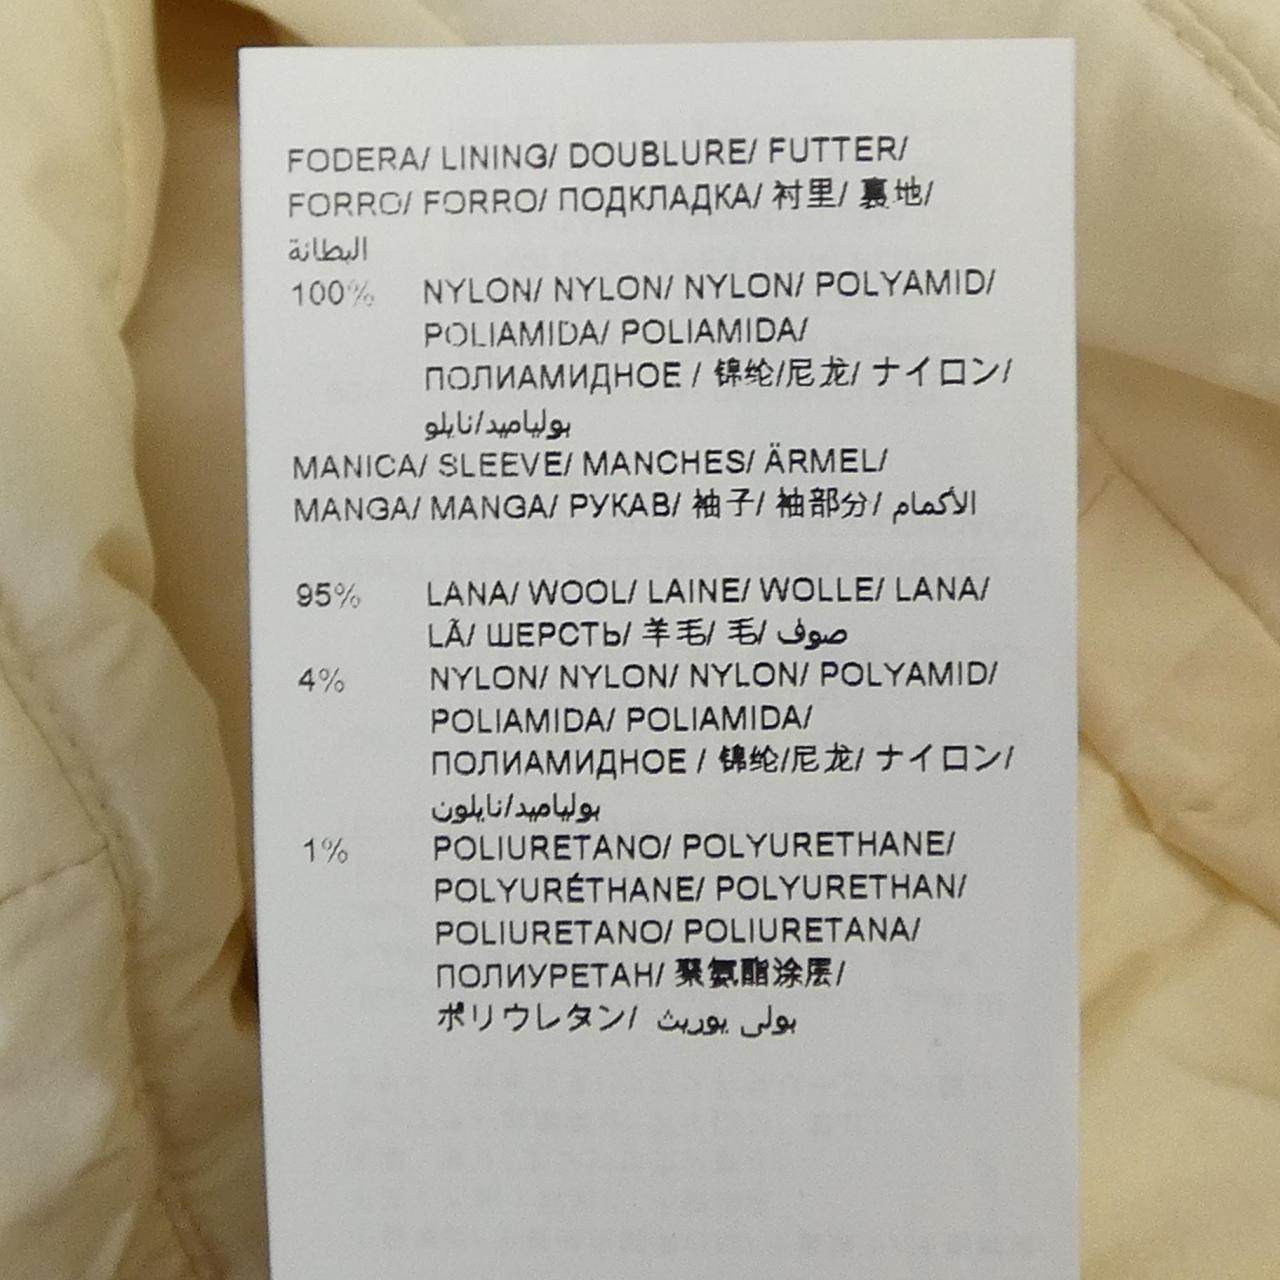 FODERA/ LINING/ DOUBLURE/ FUTTER/
FORRO/ FORRO/ ПОДКЛАДКА/ 衬里/ 裏地/
البطانة
100% NYLON/ NYLON/ NYLON/ POLYAMID/
POLIAMIDA/ POLIAMIDA/
ПОЛИАМИДНОЕ / 锦纶/尼龙/ ナイロン/
بولياميد/نايلو
MANICA/ SLEEVE/ MANCHES/ ÄRMEL/
MANGA/ MANGA/ РУКАВ/ 袖子/ 袖部分/ الأكمام
95% LANA/ WOOL/ LAINE/ WOLLE/ LANA/
LÃ/ ШЕРСТЬ/ 羊毛/ 毛/ صوف
4% NYLON/ NYLON/ NYLON/ POLYAMID/
POLIAMIDA/ POLIAMIDA/
ПОЛИАМИДНОЕ / 锦纶/尼龙/ ナイロン/
بولياميد/نايلون
1% POLIURETANO/ POLYURETHANE/
POLYURÉTHANE/ POLYURETHAN/
POLIURETANO/ POLIURETANA/
ПОЛИУРЕТАН/ 聚氨酯涂层/
ポリウレタン/ بولي يوريث